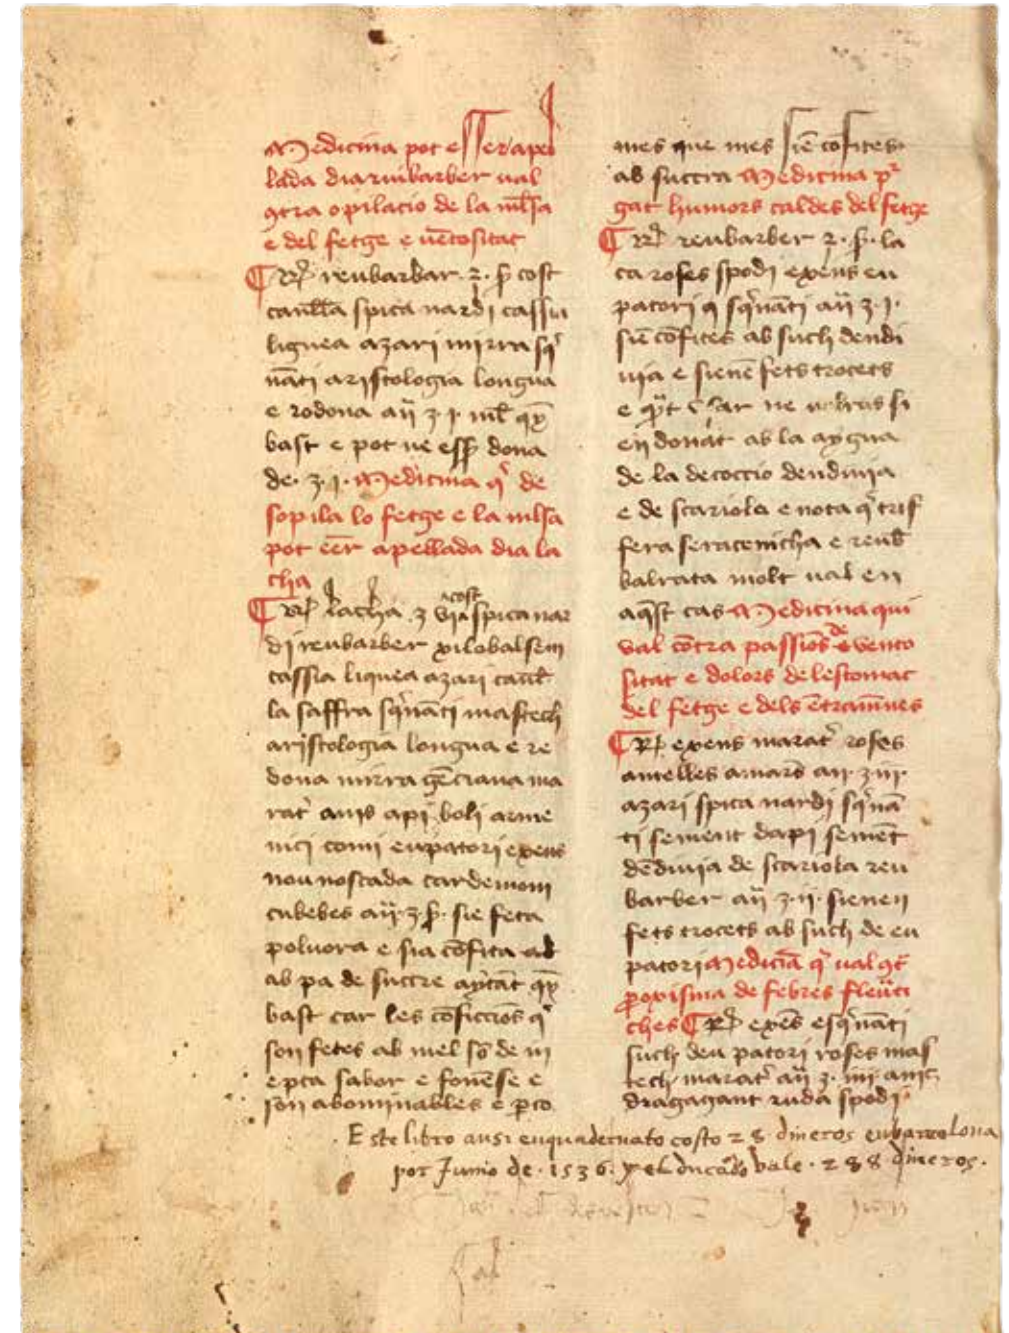 Medicina pot esser apel
lada diarrubarber val
9tra opilacio de la mlsa
e del fetge e uẽtositat
reubarbar. cost
canlla spica nardi cassia
lignea azari mirra sqͥ
nãti aristologia longua
e rodona añ ʒ. j. ml̃ qͣ
bast e pot ne essẽ dona
de. ʒ. j. Medicina qͥ de
sopila lo fetge e la mlsa
pot eẽr apellada dia la
cha
lacha ʒ vij. cost spica nar
di reubarber xilobalsem
cassia liquea azari canl̃
la saffra sqͥnãti mastech
aristologia longua e re
dona mirra gẽciana ma
rat̉ anis api boli arme
nici comi eupatori exens
nou noscada cardemoni
cubebes añ. ʒ. sie feta
poluora e sia cõfita ab
ab pa de succre aytãt qͣ
bast car les cõficcios qͥ
son fetes ab mel sõ de m
sabor e fonẽse e
son abominables e ꝑço
mes que mes siẽ cõfites.
ab succra Medicina pͬ
gat humors caldes del fetge
reubarber la
ca roses spodi exẽns eu
patori sqͥnãti añ ʒ. j.
siẽ cõfites ab such dendi
uia e sienẽ fets trocets
e ne si
en donat ab la aygua
de la decoccio dendiuia
e de scariola e nota qͥ trif
fera seracenicha e reub̃
balrata molt val en
aqͥst cas Medicina qui
val cõtra passions de vento
sitat e dolors de lestomac
del fetge e dels ẽtramẽnes
exens marat̉ roses
amelles amars añ. ʒ. iij.
azari spica nardi sqͥnã
ti sement dapi semẽt
dẽdiuia de scariola reu
barber añ ʒ. ij. sienen
fets trocets ab such de eu
patori Mediciã qͥ val 9t̃
ꝑoxisma de febres fleuti
ches exẽs esqͥnãti
such deu patori roses mas
tech marat̉ añ ʒ. iiij. anis
dragagant ruda spodi
Este libro ansi enquadernato costo 28 dineros en barcelona
por Junio de. 1536. y el ducado vale. 288 dineros.